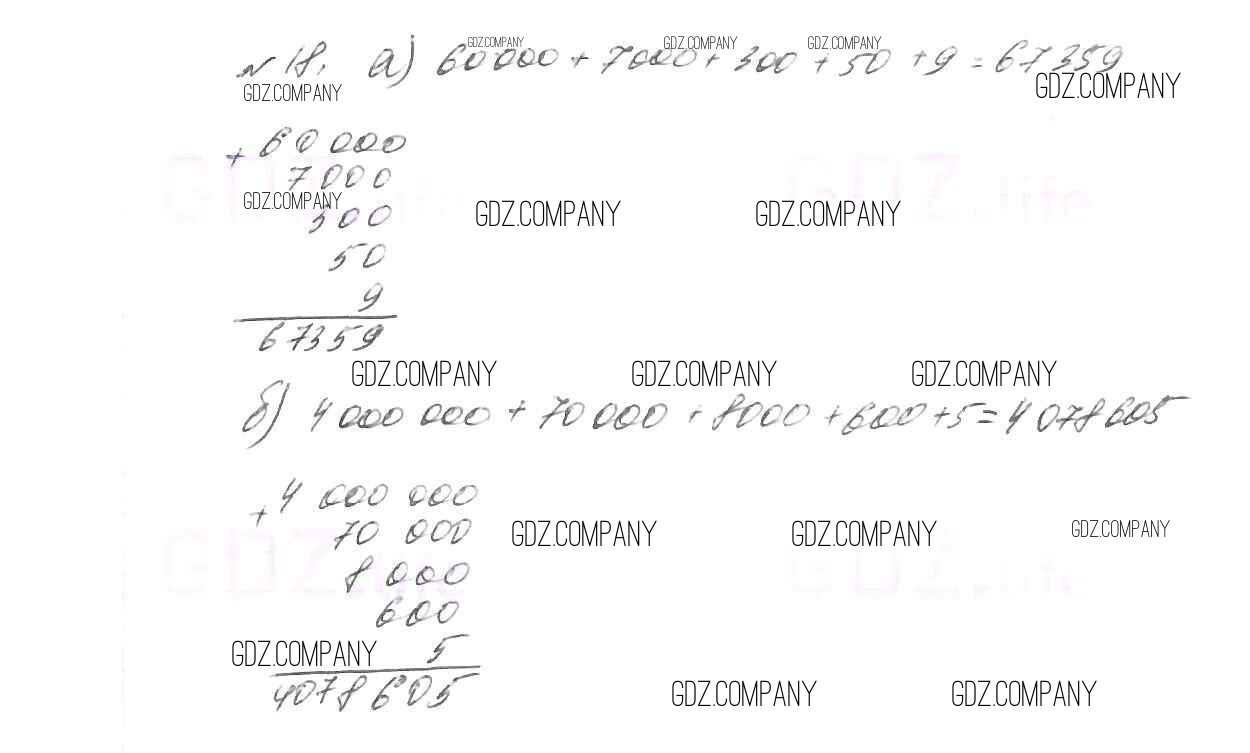 № 18. а) 60000 + 7000 + 300 + 50 + 9 = 67359
GDZ.COMPANY GDZ.COMPANY GDZ.COMPANY
GDZ.COMPANY GDZ.COMPANY
+ 60 000
7000
GDZ.life GDZ.life
GDZ.COMPANY GDZ.COMPANY GDZ.COMPANY
300
50
9
67359
GDZ.COMPANY GDZ.COMPANY GDZ.COMPANY
б) 4 000 000 + 70 000 + 8000 + 600 + 5 = 4 078 605
+ 4 000 000
70 000
GDZ.COMPANY GDZ.COMPANY GDZ.COMPANY
8 000
GDZ.life GDZ.life
600
GDZ.COMPANY 5
4078 605
GDZ.COMPANY GDZ.COMPANY